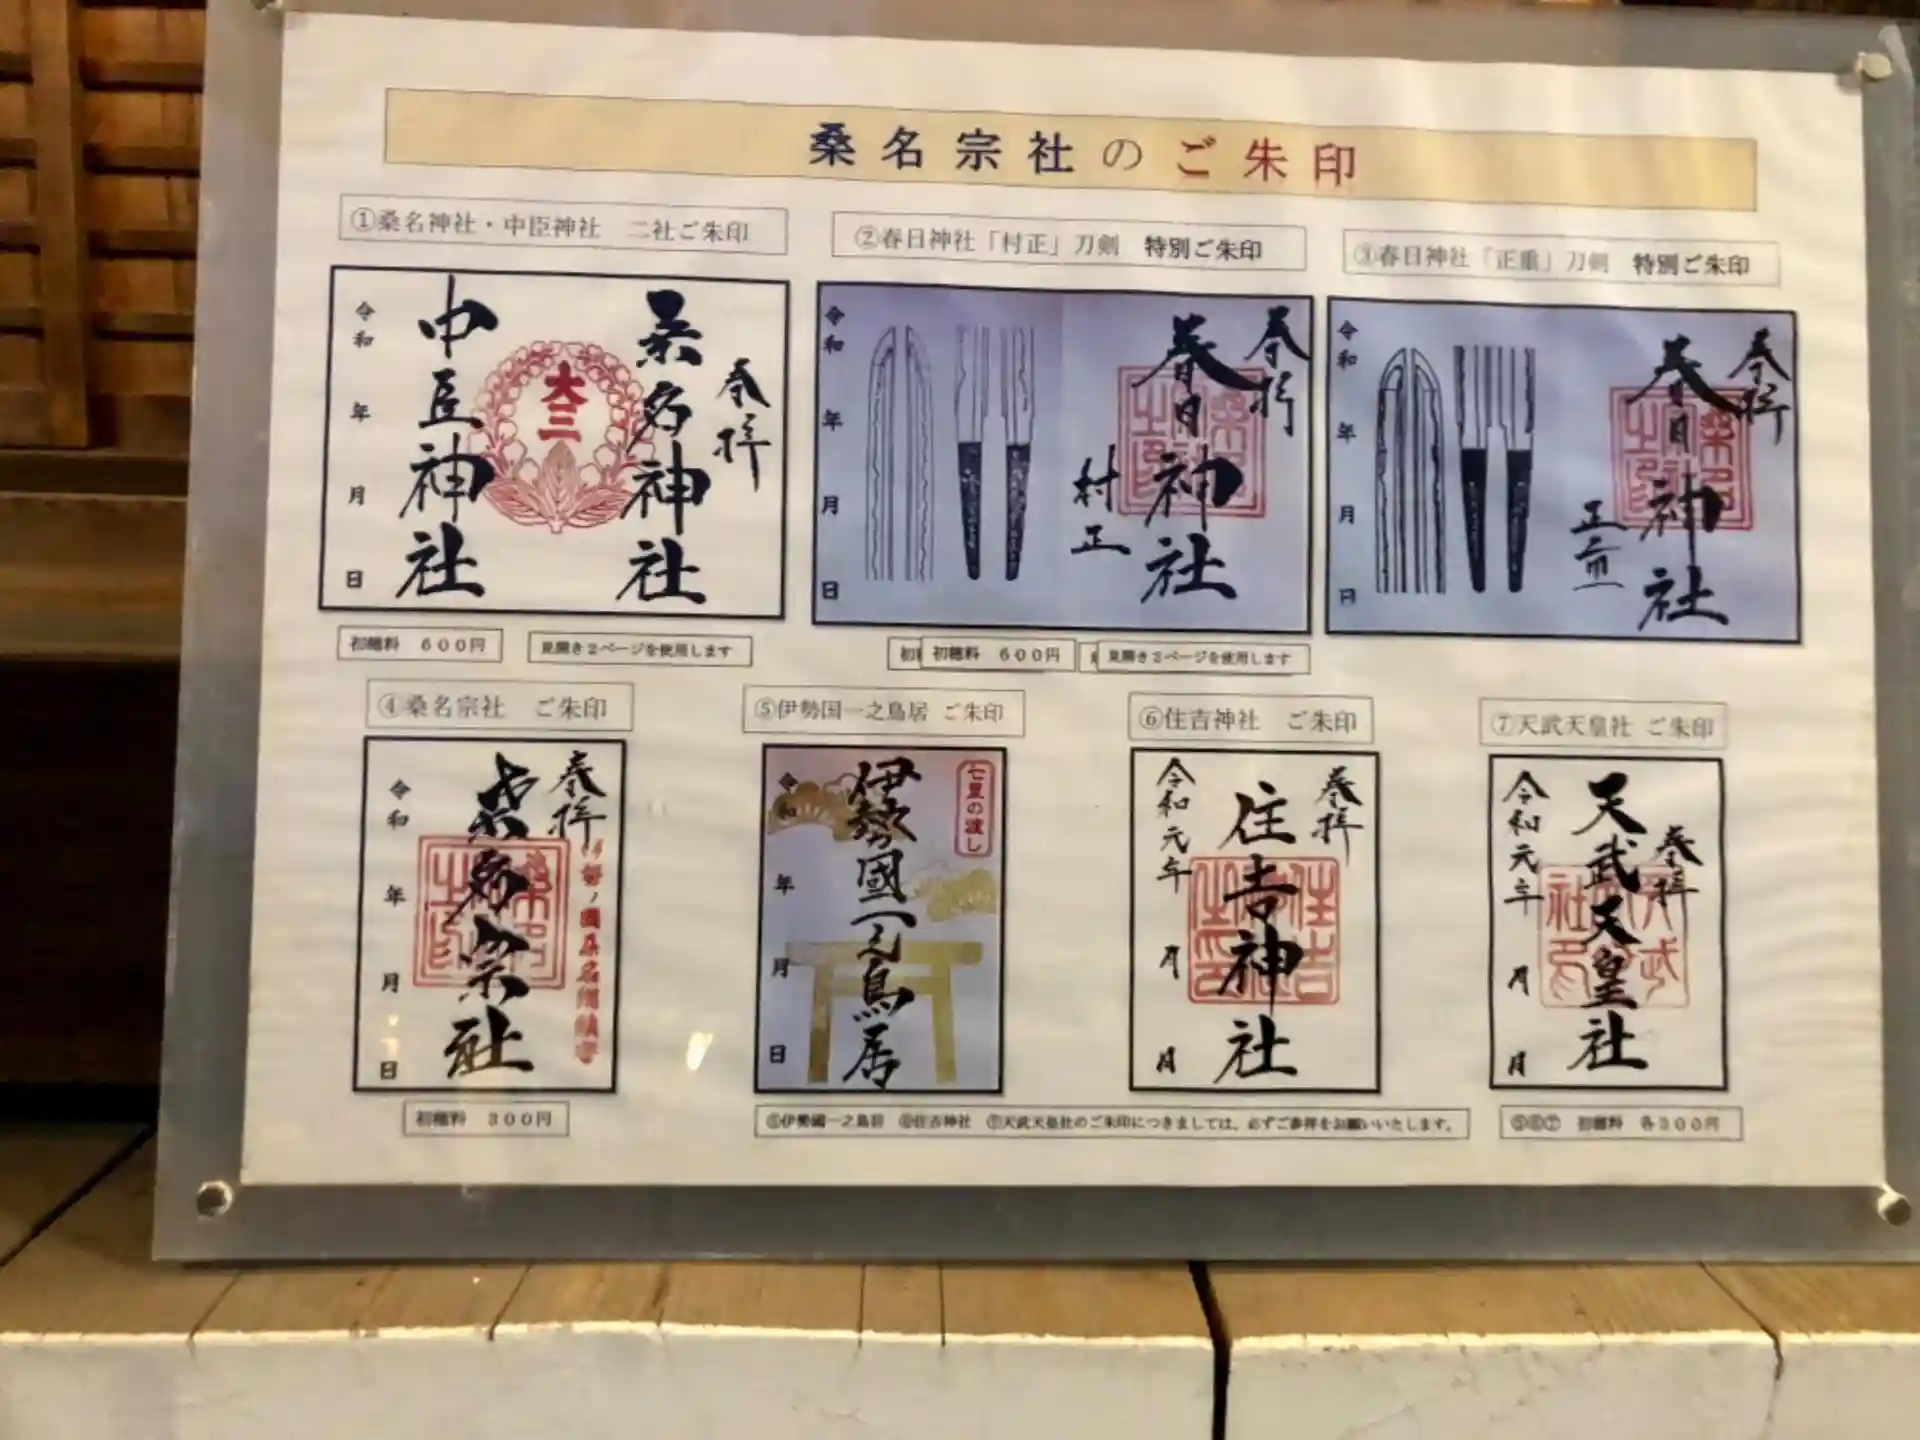 桑名宗社のご朱印
①桑名神社・中臣神社　二社ご朱印
②春日神社「村正」刀剣　特別ご朱印
③春日神社「正重」刀剣　特別ご朱印
奉拝
桑名神社
大三
中臣神社
令和　年　月　日
奉拝
春日神社
村正
令和　年　月　日
奉拝
春日神社
正重
令和　年　月　日
初穂料　６００円
見開き２ページを使用します
初穂料　６００円
見開き２ページを使用します
④桑名宗社　ご朱印
⑤伊勢国一之鳥居 ご朱印
⑥住吉神社　ご朱印
⑦天武天皇社 ご朱印
奉拝
桑名宗社
令和　年　月　日
七里の渡し
伊勢國一之鳥居
令和　年　月　日
奉拝
住吉神社
令和元年　月　日
奉拝
天武天皇社
令和元年　月　日
初穂料　３００円
⑤伊勢國一之鳥居　⑥住吉神社　⑦天武天皇社のご朱印につきましては、必ずご参拝をお願いいたします。
⑤⑥⑦　初穂料　各３００円